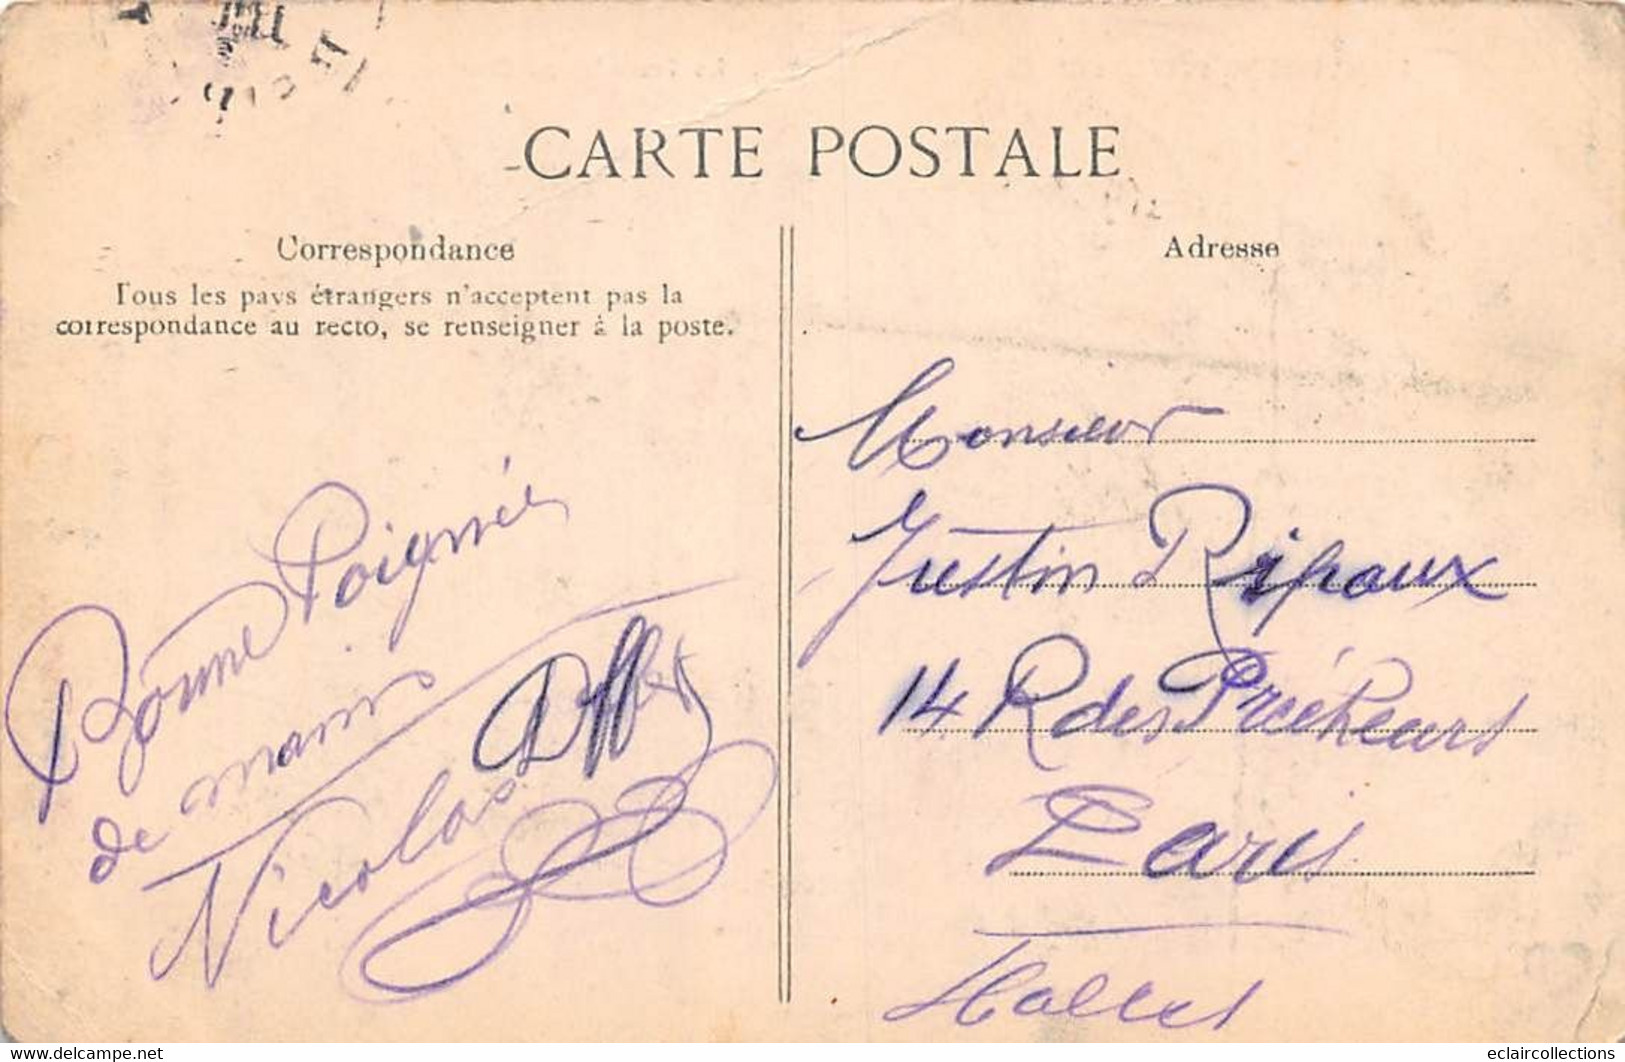 CARTE POSTALE
Correspondance
Tous les pays étrangers n'acceptent pas la
correspondance au recto, se renseigner à la poste.
Bonne Poignée
de mains
Nicolas
Adresse
Monsieur
Justin Ripaux
14 R des Prêcheurs
Paris
Halles
www.delcampe.net
eclaircollections